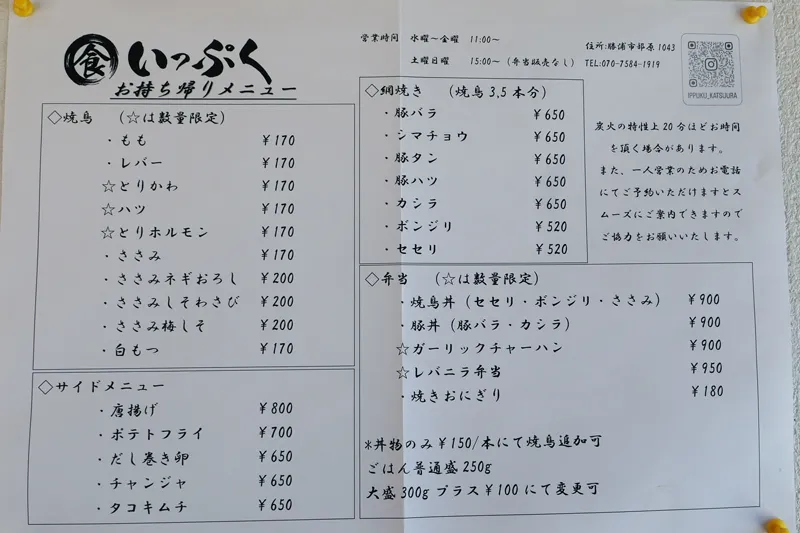 食 いっぷく
お持ち帰りメニュー
営業時間 水曜～金曜 11:00～
土曜日曜 15:00～（弁当販売なし）
住所:勝浦市部原1043
TEL:070-7584-1919
IPPUKU_KATSUURA
◇焼鳥 （☆は数量限定）
・もも ¥170
・レバー ¥170
☆とりかわ ¥170
☆ハツ ¥170
☆とりホルモン ¥170
・ささみ ¥170
・ささみネギおろし ¥200
・ささみしそわさび ¥200
・ささみ梅しそ ¥200
・白もつ ¥170
◇サイドメニュー
・唐揚げ ¥800
・ポテトフライ ¥700
・だし巻き卵 ¥650
・チャンジャ ¥650
・タコキムチ ¥650
◇網焼き （焼鳥3,5本分）
・豚バラ ¥650
・シマチョウ ¥650
・豚タン ¥650
・豚ハツ ¥650
・カシラ ¥650
・ボンジリ ¥520
・セセリ ¥520
炭火の特性上20分ほどお時間
を頂く場合があります。
また、一人営業のためお電話
にてご予約いただけますとス
ムーズにご案内できますので
ご協力をお願いいたします。
◇弁当 （☆は数量限定）
・焼鳥丼（セセリ・ボンジリ・ささみ） ¥900
・豚丼（豚バラ・カシラ） ¥900
☆ガーリックチャーハン ¥900
☆レバニラ弁当 ¥950
・焼きおにぎり ¥180
*丼物のみ¥150/本にて焼鳥追加可
ごはん普通盛250g
大盛300gプラス¥100にて変更可